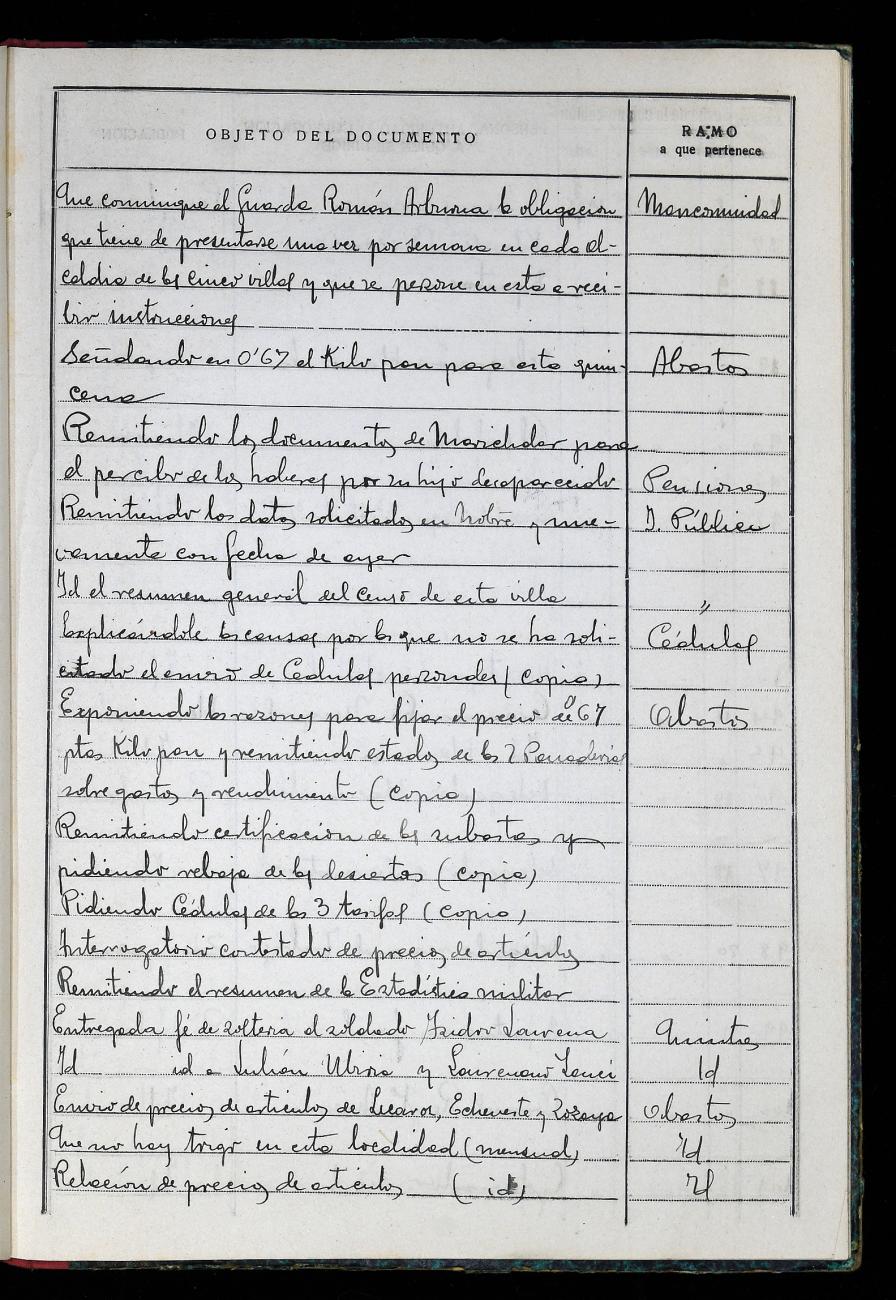 OBJETO DEL DOCUMENTO
RAMO
a que pertenece
Que comunique al Guarda Román la obligacion Mancomunidad
que tiene de presentarse una vez por semana en cada al-
caldia de las cinco villas y que se persone en esta a reci-
bir instrucciones
Señalando en 0'67 el Kilo pan para esta quin- Abastos
cena
Remitiendo los documentos de Marichalar para
el percibo de los haberes por su hijo desaparecido Pensiones
Remitiendo los datos solicitados en Nobre y nue- I. Pública
vamente con fecha de ayer
Id el resumen general del Censo de esta villa "
Explicándole las causas por las que no se ha soli- Cédulas
citado el envio de Cedulas personales (copia)
Exponiendo las razones para fijar el precio de 0'67 Abastos
ptas Kilo pan y remitiendo estados de las 2 Panaderias
sobre gastos y rendimiento (copia)
Remitiendo certificacion de las subastas y
pidiendo rebaja de las desiertas (copia)
Pidiendo Cédulas de las 3 tarifas (copia)
Interrogatorio contestado de precios de artículos
Remitiendo el resumen de la Estadística militar
Entregada fé de solteria al soldado Isidro Quintas
Id id a Julián Ubiria y Laureano Id
Envio de precios de articulos de Lecaroz, Echeveste y Zozaya Abastos
Que no hay trigo en esta localidad (mensual) Id
Relación de precios de articulos (id) Id